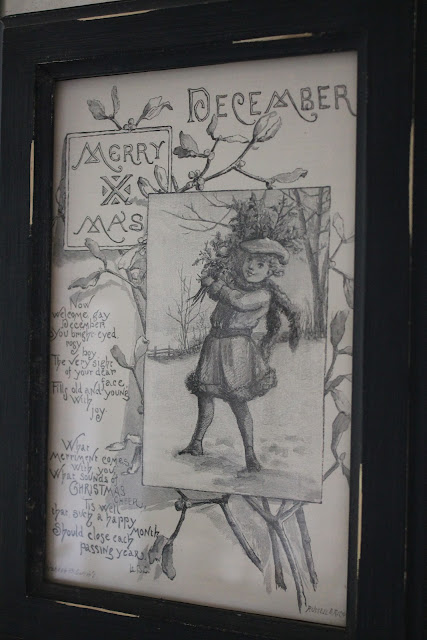 DECEMBER
MERRY
X
MA'S
Now
welcome gay
December
you bright eyed
rosy
boy
The very sight
of your dear
face
Fills old and young
With
joy.
What
merriment comes
With you
What sounds of
CHRISTMAS
CHEER
Tis well
that such a happy
month
Should close each
passing years